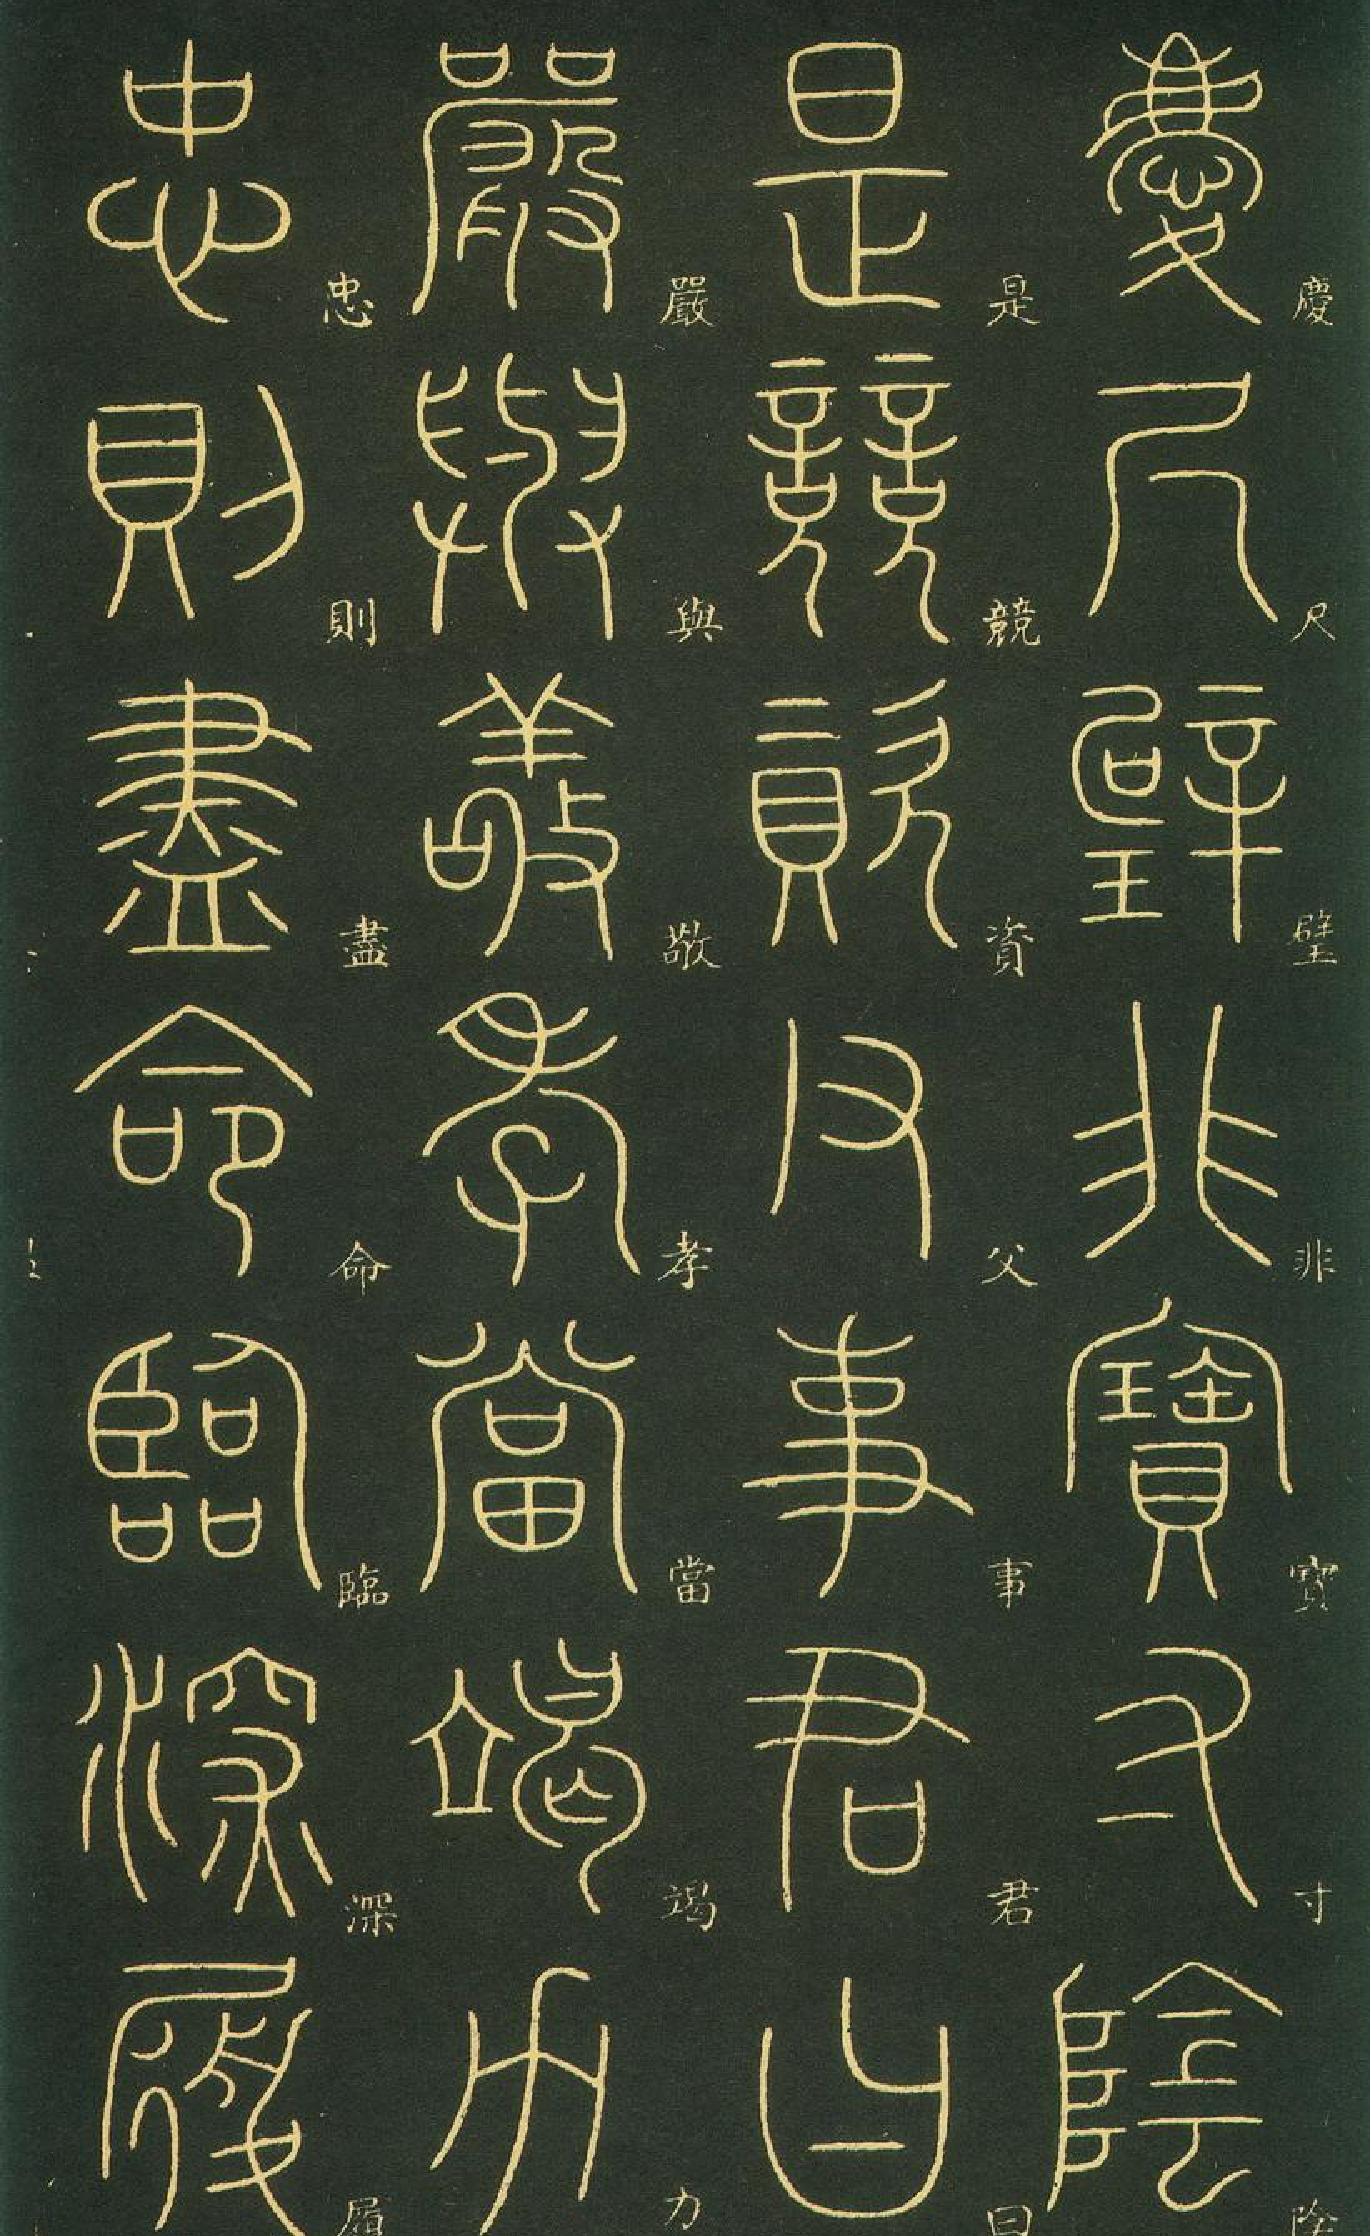 慶尺璧非寶寸陰
是競資父事君曰
嚴與敬孝當竭力
忠則盡命臨深履